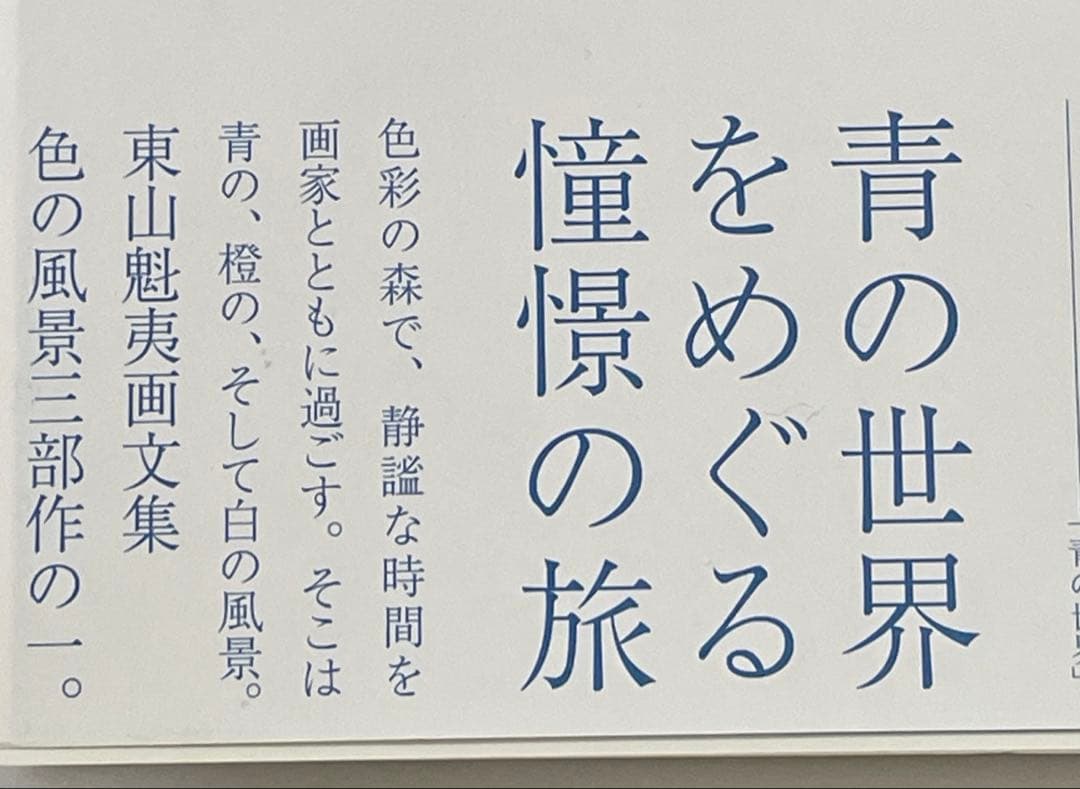 「青の世界」
青の世界
をめぐる
憧憬の旅
色彩の森で、静謐な時間を
画家とともに過ごす。そこは
青の、橙の、そして白の風景。
東山魁夷画文集
色の風景三部作の一。